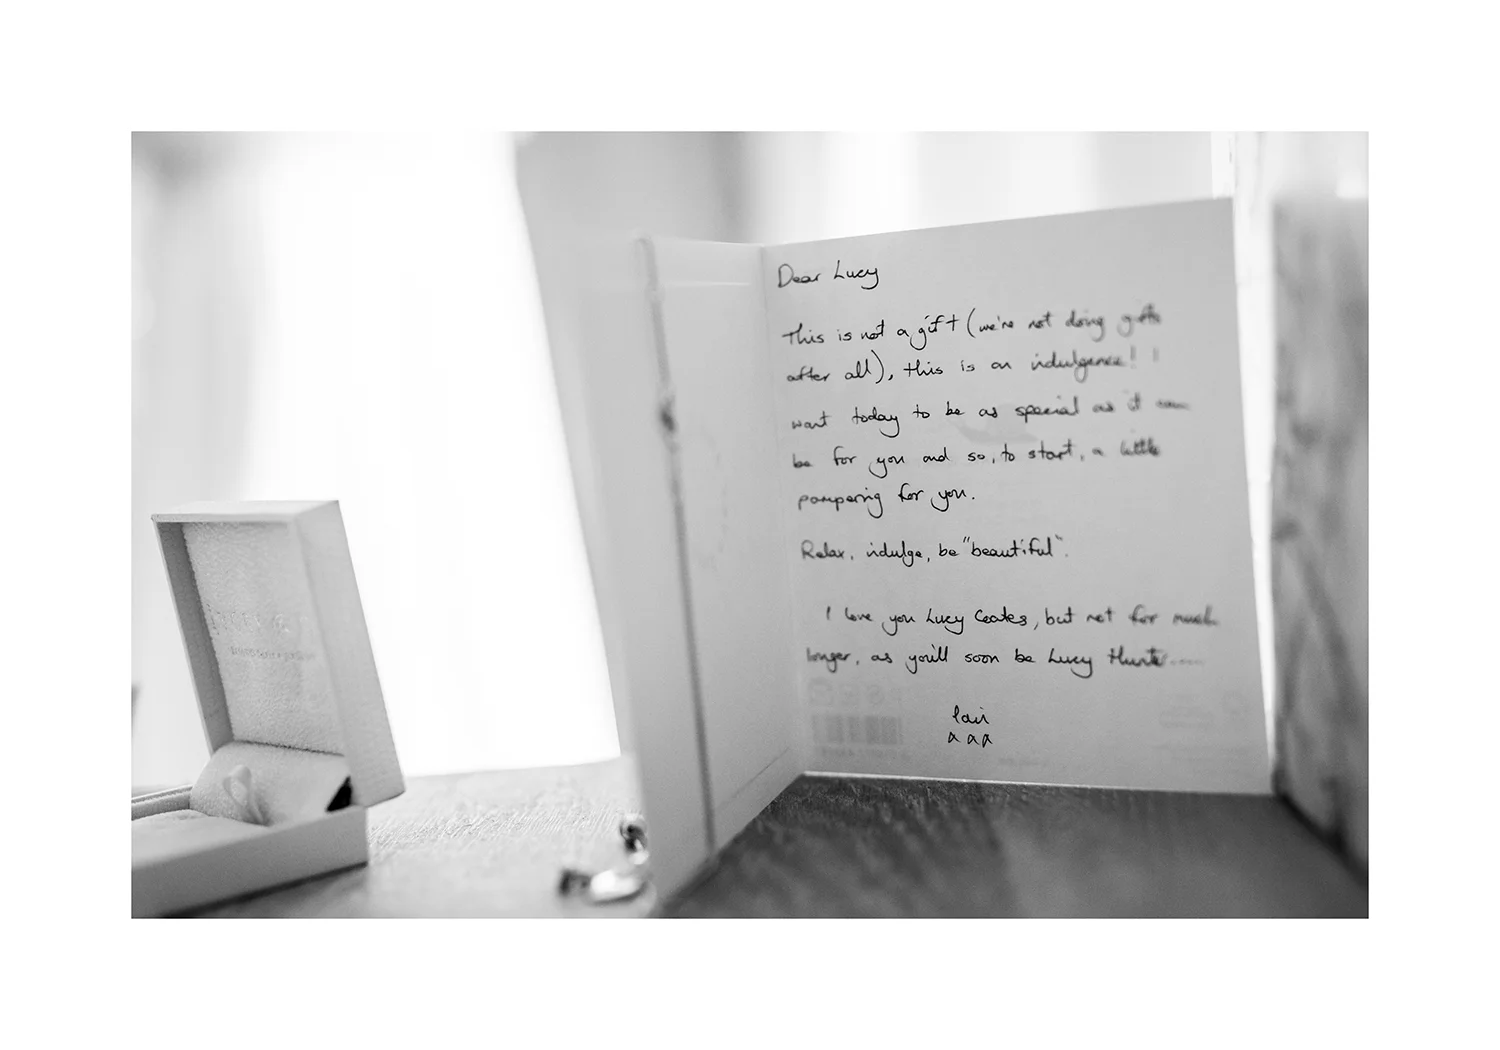 Dear Lucy
This is not a gift (we're not doing gifts
after all), this is an indulgence! I
want today to be as special as it can
be for you and so, to start, a little
pampering for you.
Relax, indulge, be "beautiful".
I love you Lucy Coates, but not for much
longer, as you'll soon be Lucy Hunter....
Iain
x x x